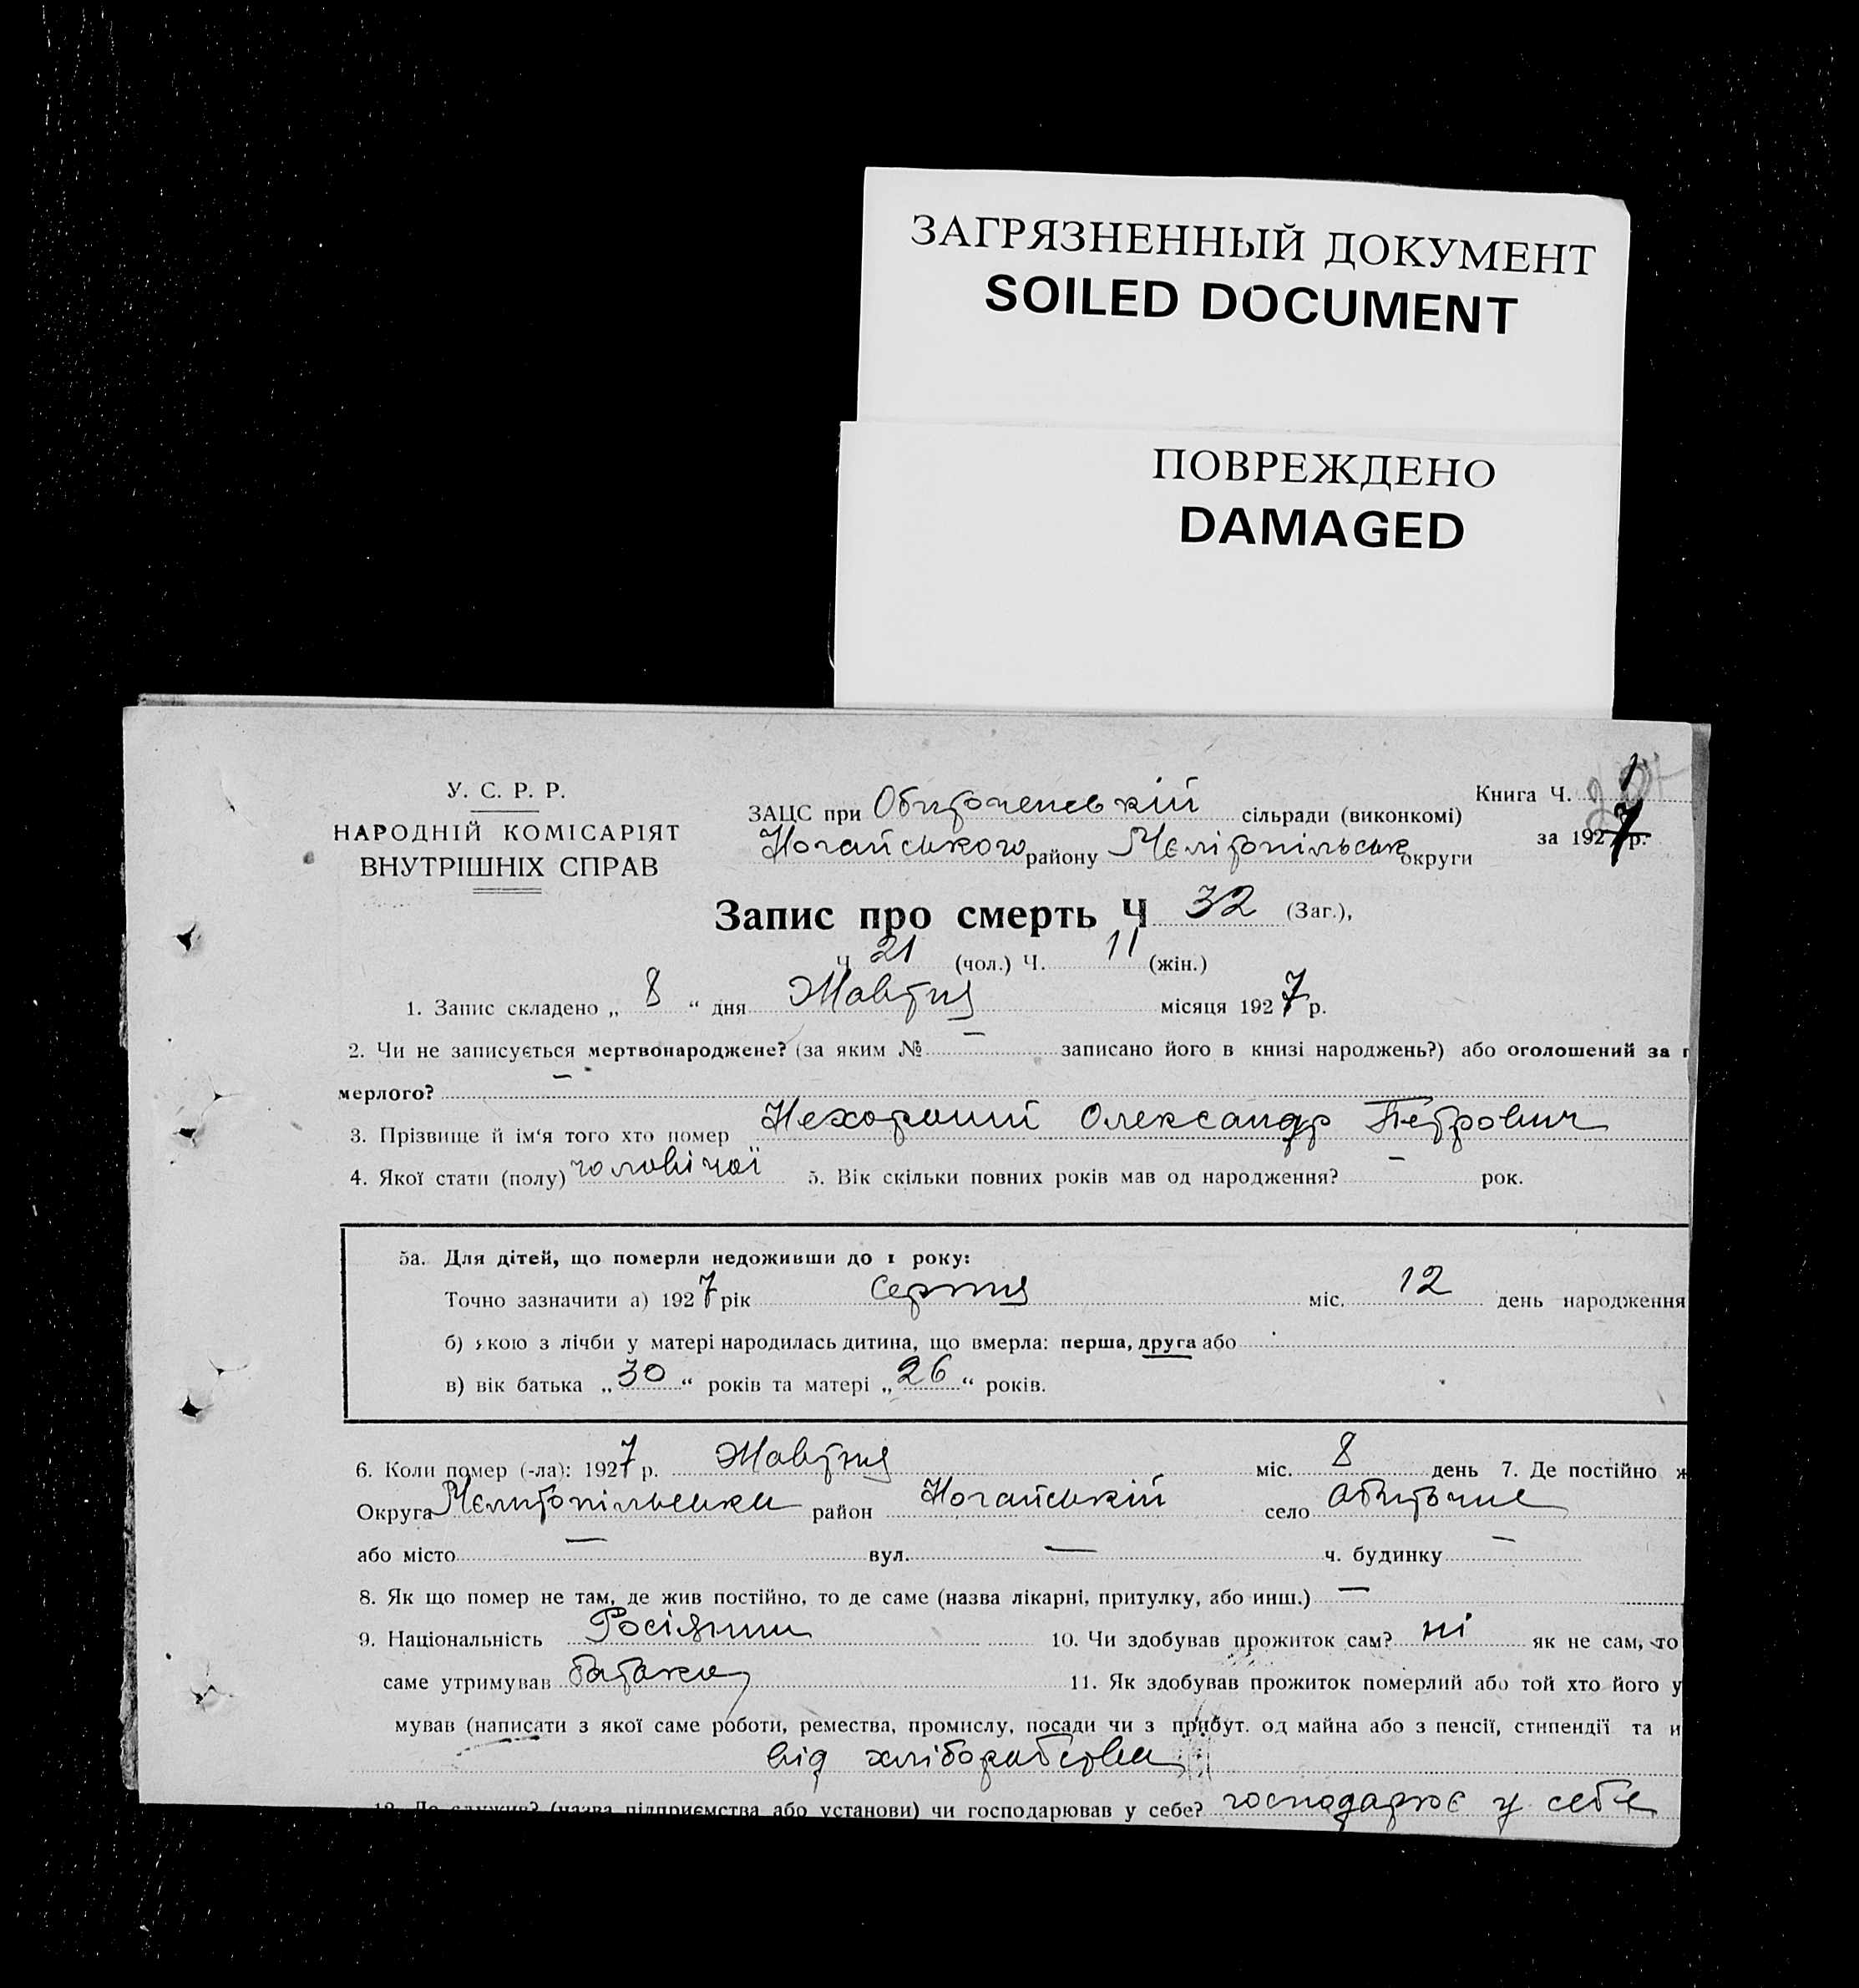 ЗАГРЯЗНЕННЫЙ ДОКУМЕНТ
SOILED DOCUMENT
ПОВРЕЖДЕНО
DAMAGED
У. С. Р. Р.
НАРОДНІЙ КОМІСАРІЯТ
ВНУТРІШНІХ СПРАВ
Книга Ч. 1
за 1927 р.
ЗАЦС при Обиточенській сільради (виконкомі)
Ногайського району Мєлітопільськ округи
Запис про смерть Ч 32 (Заг.),
Ч 21 (чол.) Ч. 11 (жін.)
1. Запис складено „ 8 “ дня Жовтня місяця 1927 р.
2. Чи не записується мертвонароджене? (за яким № — записано його в книзі народжень?) або оголошений за п
мерлого? —
3. Прізвище й ім‘я того хто помер Нехороший Олександр Петрович
4. Якої стати (полу) чоловічої 5. Вік скільки повних років мав од народження? — рок.
5а. Для дітей, що померли недоживши до 1 року:
Точно зазначити а) 1927 рік Серпня міс. 12 день народження
б) якою з лічби у матері народилась дитина, що вмерла: перша, друга або
в) вік батька „ 30 “ років та матері „ 26 “ років.
6. Коли помер (-ла): 1927 р. Жовтня міс. 8 день 7. Де постійно ж
Округа Мєлитопільська район Ногайський село Обиточне
або місто — вул. — ч. будинку —
8. Як що помер не там, де жив постійно, то де саме (назва лікарні, притулку, або инш.) —
9. Національність Росіянин 10. Чи здобував прожиток сам? ні як не сам, то
саме утримував 11. Як здобував прожиток померлий або той хто його у
мував (написати з якої саме роботи, ремества, промислу, посади чи з прибут. од майна або з пенсії, стипендії та и
від хліборабства
12. Де служив? (назва підприємства або установи) чи господарював у себе? господарює у себе